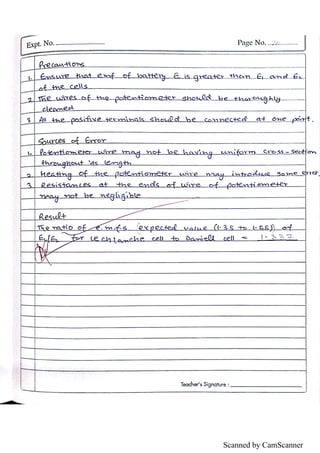 Expt. No.
Page No.
Precautions
1. Ensure that emf of battery E is greater than E1 and E2
of the cells
2. The wires of the potentiometer should be thoroughly
cleaned
3. All the positive terminals should be connected at one point.
Sources of Error
1. Potentiometer wire may not be having uniform cross-section
throughout its length
2. Heating of the potentiometer wire may introduce some error.
3. Resistances at the ends of wire of potentiometer
may not be negligible
Result
The ratio of e.m.fs expected value (1.35 to 1.55) of
E1/E2 for lechlanche cell to Daniell cell =
Teacher's Signature :
Scanned by CamScanner